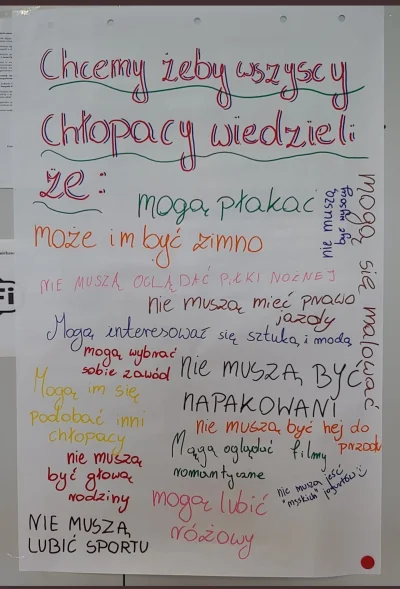 Chcemy żeby wszyscy
chłopacy wiedzieli
że:
mogą płakać
może im być zimno
nie muszą
być wysocy
mogą się malować
NIE MUSZĄ OGLĄDAĆ PIŁKI NOŻNEJ
nie muszą mieć prawo
jazdy
Mogą interesować się sztuką i modą
mogą wybrać
sobie zawód
nie MUSZĄ BYĆ
NAPAKOWANI
Mogą im się
podobać inni
chłopacy
nie muszą być hej do
przodu
Mogą oglądać filmy
romantyczne
nie muszą
być głową
rodziny
nie muszą jeść
"męskich" jogurtów :
mogą lubić
różowy
NIE MUSZĄ
LUBIĆ SPORTU
Fi